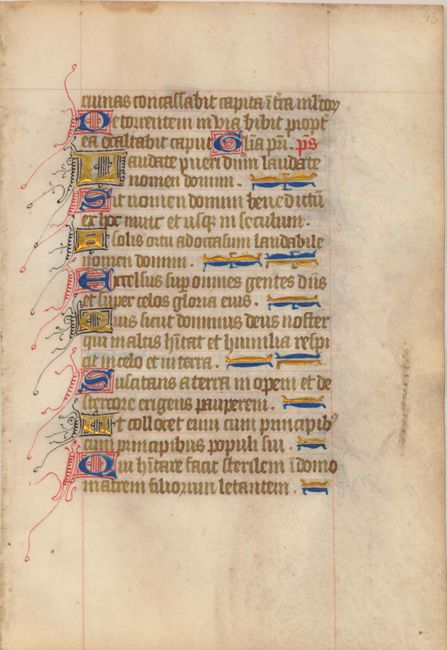 ruinas conc̄assabit capita ī t̄ra ml̄toꝝ
De torrentem in via bibit propt̄
ea exaltabit caput Glīa pr̄i. ps̄
Laudate pueri dūm laudate
nomen domini.
Sit nomen domini benedictū
ex hoc nunc et usq; in seculum.
A solis ortu ad occasum laudabile
nomen domini.
Excelsus sup omnes gentes dn̄s
et super celos gloria eius.
Quis sicut dominus deus noster
qui in altis hītat et humilia respi
cit in celo et in terra.
Suscitans a terra in opem et de
stercore erigens pauperem.
Ut collocet eum cum principibꝰ
cum principibus populi sui.
Qui hītare facit sterilem ī domo
matrem filiorum letantem.